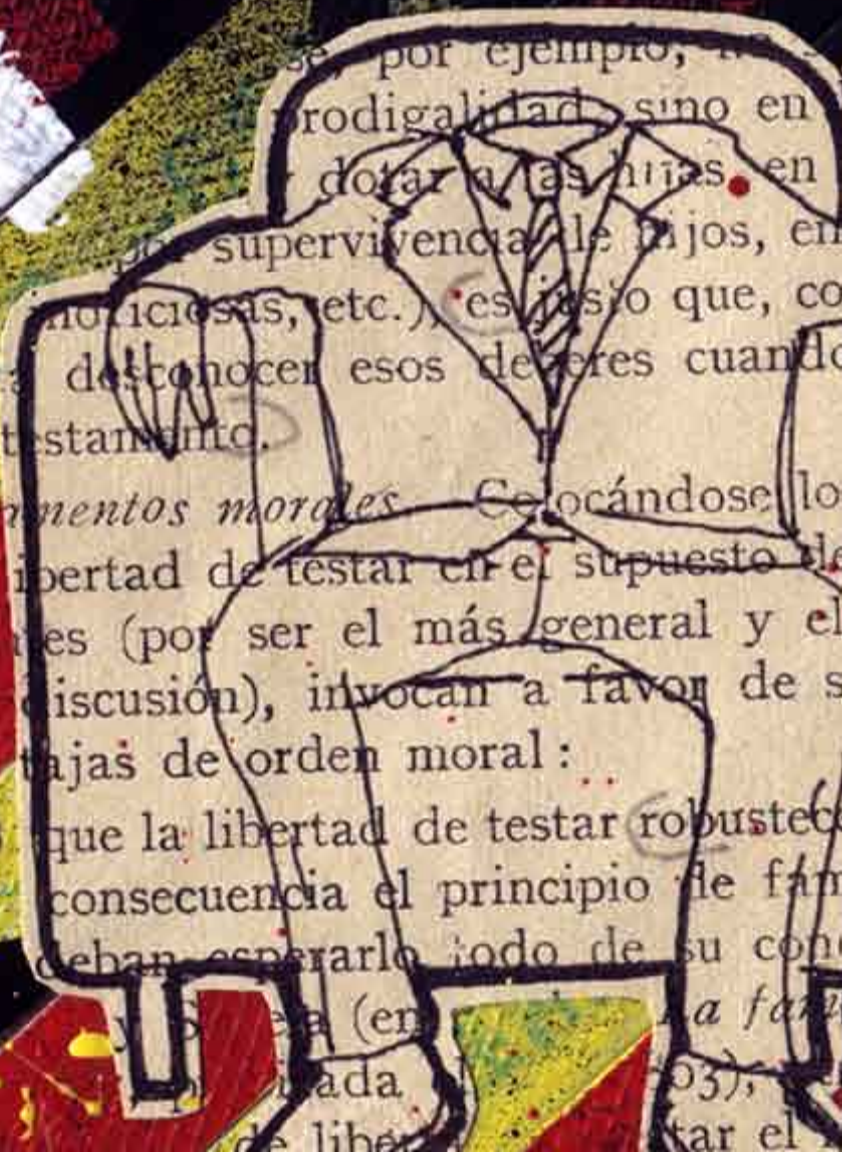 se, por ejemplo,
prodigalidad, sino en
dotar a las hijas en
por supervivencia de hijos, en
noticiosas, etc.), es justo que, co
desconocer esos deberes cuando
testamento.
mentos morales Colocándose lo
ibertad de testar en el supuesto de
es (por ser el más general y el
discusión), invocan a favor de s
tajas de orden moral:
que la libertad de testar robustec
consecuencia el principio de fam
deban esperarlo todo de su con
y (en La fam
ada 03),
de liber tar el